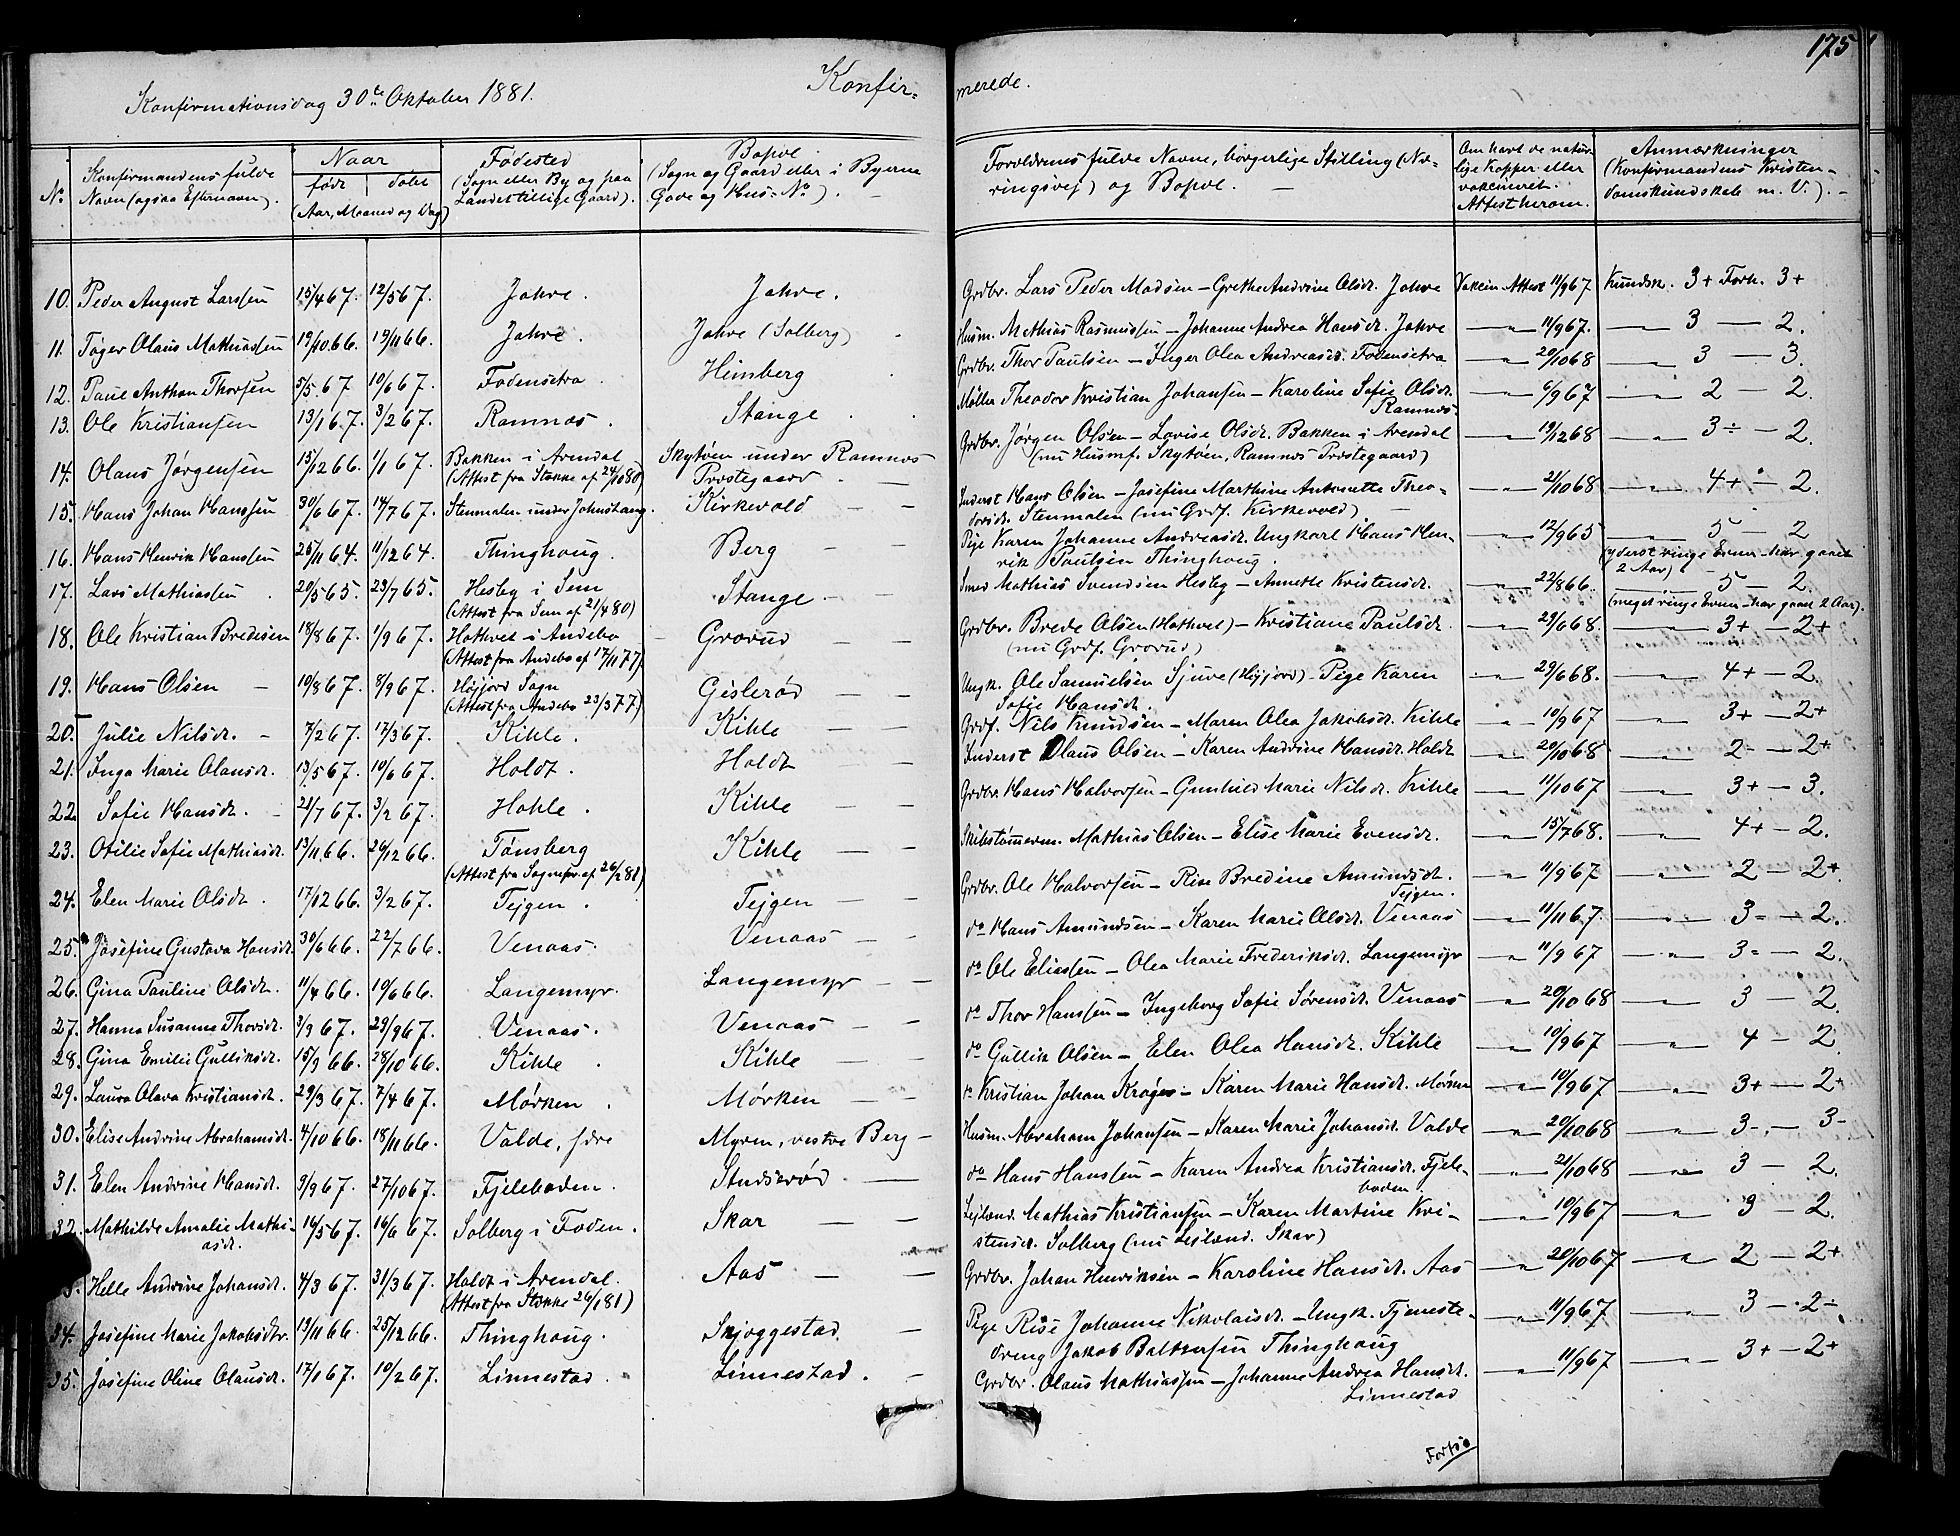 175
Konfirmationsdag 30te Oktober 1881.
Konfir-
merede.
No.
Konfirmandens fulde
Navn (ogsaa Efternavn).
Naar
født
døbt
(Aar, Maaned og Dag)
Fødested
(Sogn eller By og paa
Landet tillige Gaard).
Bopæl
(Sogn og Gaard eller i Byerne
Gade og Huus-No).
Forældrenes fulde Navne, borgerlige Stilling (Næ-
ringsvej) og Bopæl.
Om havt de natur-
lige Kopper eller
vakcineret.
Attest herom.
Anmærkninger
(Konfirmandens Kristen-
domskundskab m. V.).
10. Peder August Larssen 15/4 67. 12/5 67. Jahre. Jahre. Grdbr. Lars Peder Madsen - Grethe Andrine Olsdt. Jahre Vakcin Attest 11/9 67 Kundsk. 3+ Forh. 3+
11. Tøger Olaus Mathiassen 19/10 66. 19/11 66. Jahre. Jahre (Solberg) Husm. Mathias Rasmussen - Johanne Andrea Hansdt. Jahre — " — 11/9 67. — " — 3 — 2.
12. Paul Anthon Thorsen 5/5 67. 10/6 67. Fodensetra. Heimberg Grdbr. Thor Paulsen - Inger Olea Andreasdt. Fodensetra — " — 20/10 68 — " — 3 — 3.
13. Ole Kristiansen 13/1 67. 3/2 67. Ramnæs. Stange Møller Theodor Kristian Johansen - Karoline Sofie Olsdt. — " — 6/9 67 — " — 2 — 2.
Ramnæs
14. Olaus Jørgensen 15/12 66. 1/1 67. Bakken i Arendal Skytøen under Ramnæs Grdbr. Jørgen Olsen - Lovise Olsdt. Bakken i Arendal — " — 19/12 68 — " — 3÷ — 2.
(Attest fra Stokke af 24/10 80) Præstegaard. (nu Husmf. Skytøen, Ramnæs Præstegaard)
15. Hans Johan Hanssen 30/6 67. 14/7 67. Stenmalen under Johnshaug. Kirkevold Inderst Hans Olsen - Josefine Marthine Antonette Theo- — " — 21/10 68 — " — 4+ — 2.
dorsdt. Stenmalen (nu Grdf. Kirkevold)
16. Hans Henrik Hanssen 25/11 64. 11/12 64. Thinghoug. Berg Pige Karen Johanne Andreasdt. Ungkarl Hans Hen- — " — 12/9 65 — " — 5 — 2
rik Paulsen Thinghoug (yderst ringe Evner - har gaaet
2 Aar)
17. Lars Mathiassen 20/5 65. 23/7 65. Hesby i Sem Stange Smed Mathias Svendsen Hesby - Annette Kristensdt. — " — 22/8 66. — " — 5 — 2.
(Attest fra Sem af 21/4 80) (meget ringe Evner - har gaaet 2 Aar).
18. Ole Kristian Bredesen 18/8 67. 1/9 67. Hothvet i Andebo Grorud Grdbr. Brede Olsen (Hothvet) - Kristiane Paulsdt. — " — 29/6 68. — " — 3+ — 2+
(Attest fra Andebo af 17/11 77) (nu Grdf. Grorud)
19. Hans Olsen 10/8 67. 8/9 67. Høyjord Sogn Gislerød Ungk. Ole Samuelsen Sjuve (Høyjord) - Pige Karen — " — 29/6 68. — " — 4+ — 2.
(Attest fra Andebo 23/3 77) Sofie Hansdt.
20. Julie Nilsdt. 7/2 67. 17/3 67. Kihle. Kihle Grdf. Nils Knudsen - Maren Olea Jakobsdt. Kihle — " — 10/9 67 — " — 3+ — 2+
21. Inga Marie Olausdt. 13/5 67. 10/6 67. Holdt. Holdt Inderst Olaus Olsen - Karen Andrine Hansdt. Holdt — " — 20/10 68 — " — 2- — 2+
22. Sofie Hansdt. 21/7 67. 3/2 67. Hohle. Kihle Grdbr. Hans Halvorsen - Gunhild Marie Nilsdt. Kihle — " — 11/10 67 — " — 3+ — 3.
23. Otilie Sofie Mathiasdt. 13/11 66. 29/12 66. Tønsberg Kihle Skibstømerm. Mathias Olsen - Elise Marie Evensdt. — " — 15/7 68. — " — 4+ — 2.
(Attest fra Sognepr. af 26/2 81)
24. Elen Marie Olsdt. 17/12 66. 3/2 67. Tejgen. Tejgen Grdbr. Ole Halvorsen - Rise Bredine Amundsdt. — " — 11/9 67 — " — 2 — 2+
Tejgen.
25. Josefine Gustava Hansdt. 30/6 66. 22/7 66. Venaas. Venaas do Hans Amundsen - Karen Marie Olsdt. Venaas — " — 11/11 67. — " — 3- — 2.
26. Gina Pauline Olsdt. 11/4 66. 10/6 66. Langemyr. Langemyr do Ole Eliassen - Olea Marie Frederiksdt. Langemyr — " — 11/9 67 — " — 3- — 2.
27. Hanna Susanne Thorsdt. 3/9 67. 29/9 67. Venaas. Venaas do Thor Hanssen - Ingeborg Sofie Sørensdt. Venaas — " — 20/10 68 — " — 3 — 2.
28. Gina Emilie Gulliksdt. 15/9 66. 28/10 66. Kihle. Kihle do Gullik Olsen - Elen Olea Hansdt. Kihle — " — 10/9 67 — " — 4 — 2
29. Laura Olava Kristiansdt. 29/3 67. 7/4 67. Mørken. Mørken do Kristian Johan Krøger - Karen Marie Hansdt. Mørken — " — 10/9 67 — " — 3+ — 2+
30. Elise Andrine Abrahamsdt. 4/10 66. 18/11 66. Valde, søre Myren, vestre Berg Husm. Abraham Johansen - Karen Marie Johansdt. Valde — " — 20/10 68 — " — 3- — 3-
31. Elen Andrine Hansdt. 9/9 67. 27/10 67. Fjeleboden. Studserød do Hans Hanssen - Karen Andrea Kristiansdt. Fjele- — " — 21/10 68 — " — 3 — 2.
boden
32. Mathilde Amalie Mathi- 16/5 67. 16/6 67. Solberg i Foden. Skar Lejlænd. Mathias Kristiansen - Karen Martine Kri- — " — 10/9 67 — " — 3 — 2.
asdt. stensdt. Solberg (nu Lejlænd. Skar)
3. Helle Andrine Johansdt. 4/3 67. 31/3 67. Holdt i Arendal. Aas Grdbr. Johan Henriksen - Karoline Hansdt. Aas — " — 20/10 67 — " — 2 — 2+
(Attest fra Stokke 26/1 81)
34. Josefine Marie Jakobsdtr. 19/11 66. 25/12 66. Thinghoug. Skjøggestad Pige Rise Johanne Nikolaisdt. - Ungk. Tjeneste- — " — 11/9 67 — " — 3 — 2÷
dreng Jakob Baltsersen Thinghoug
35. Josefine Oline Olausdt. 17/1 67. 10/2 67. Linnestad. Linnestad. Grdbr. Olaus Mathiassen - Johanne Andrea Hansdt. — " — 11/9 67 — " — 3+ — 2+
Linnestad
Forts.